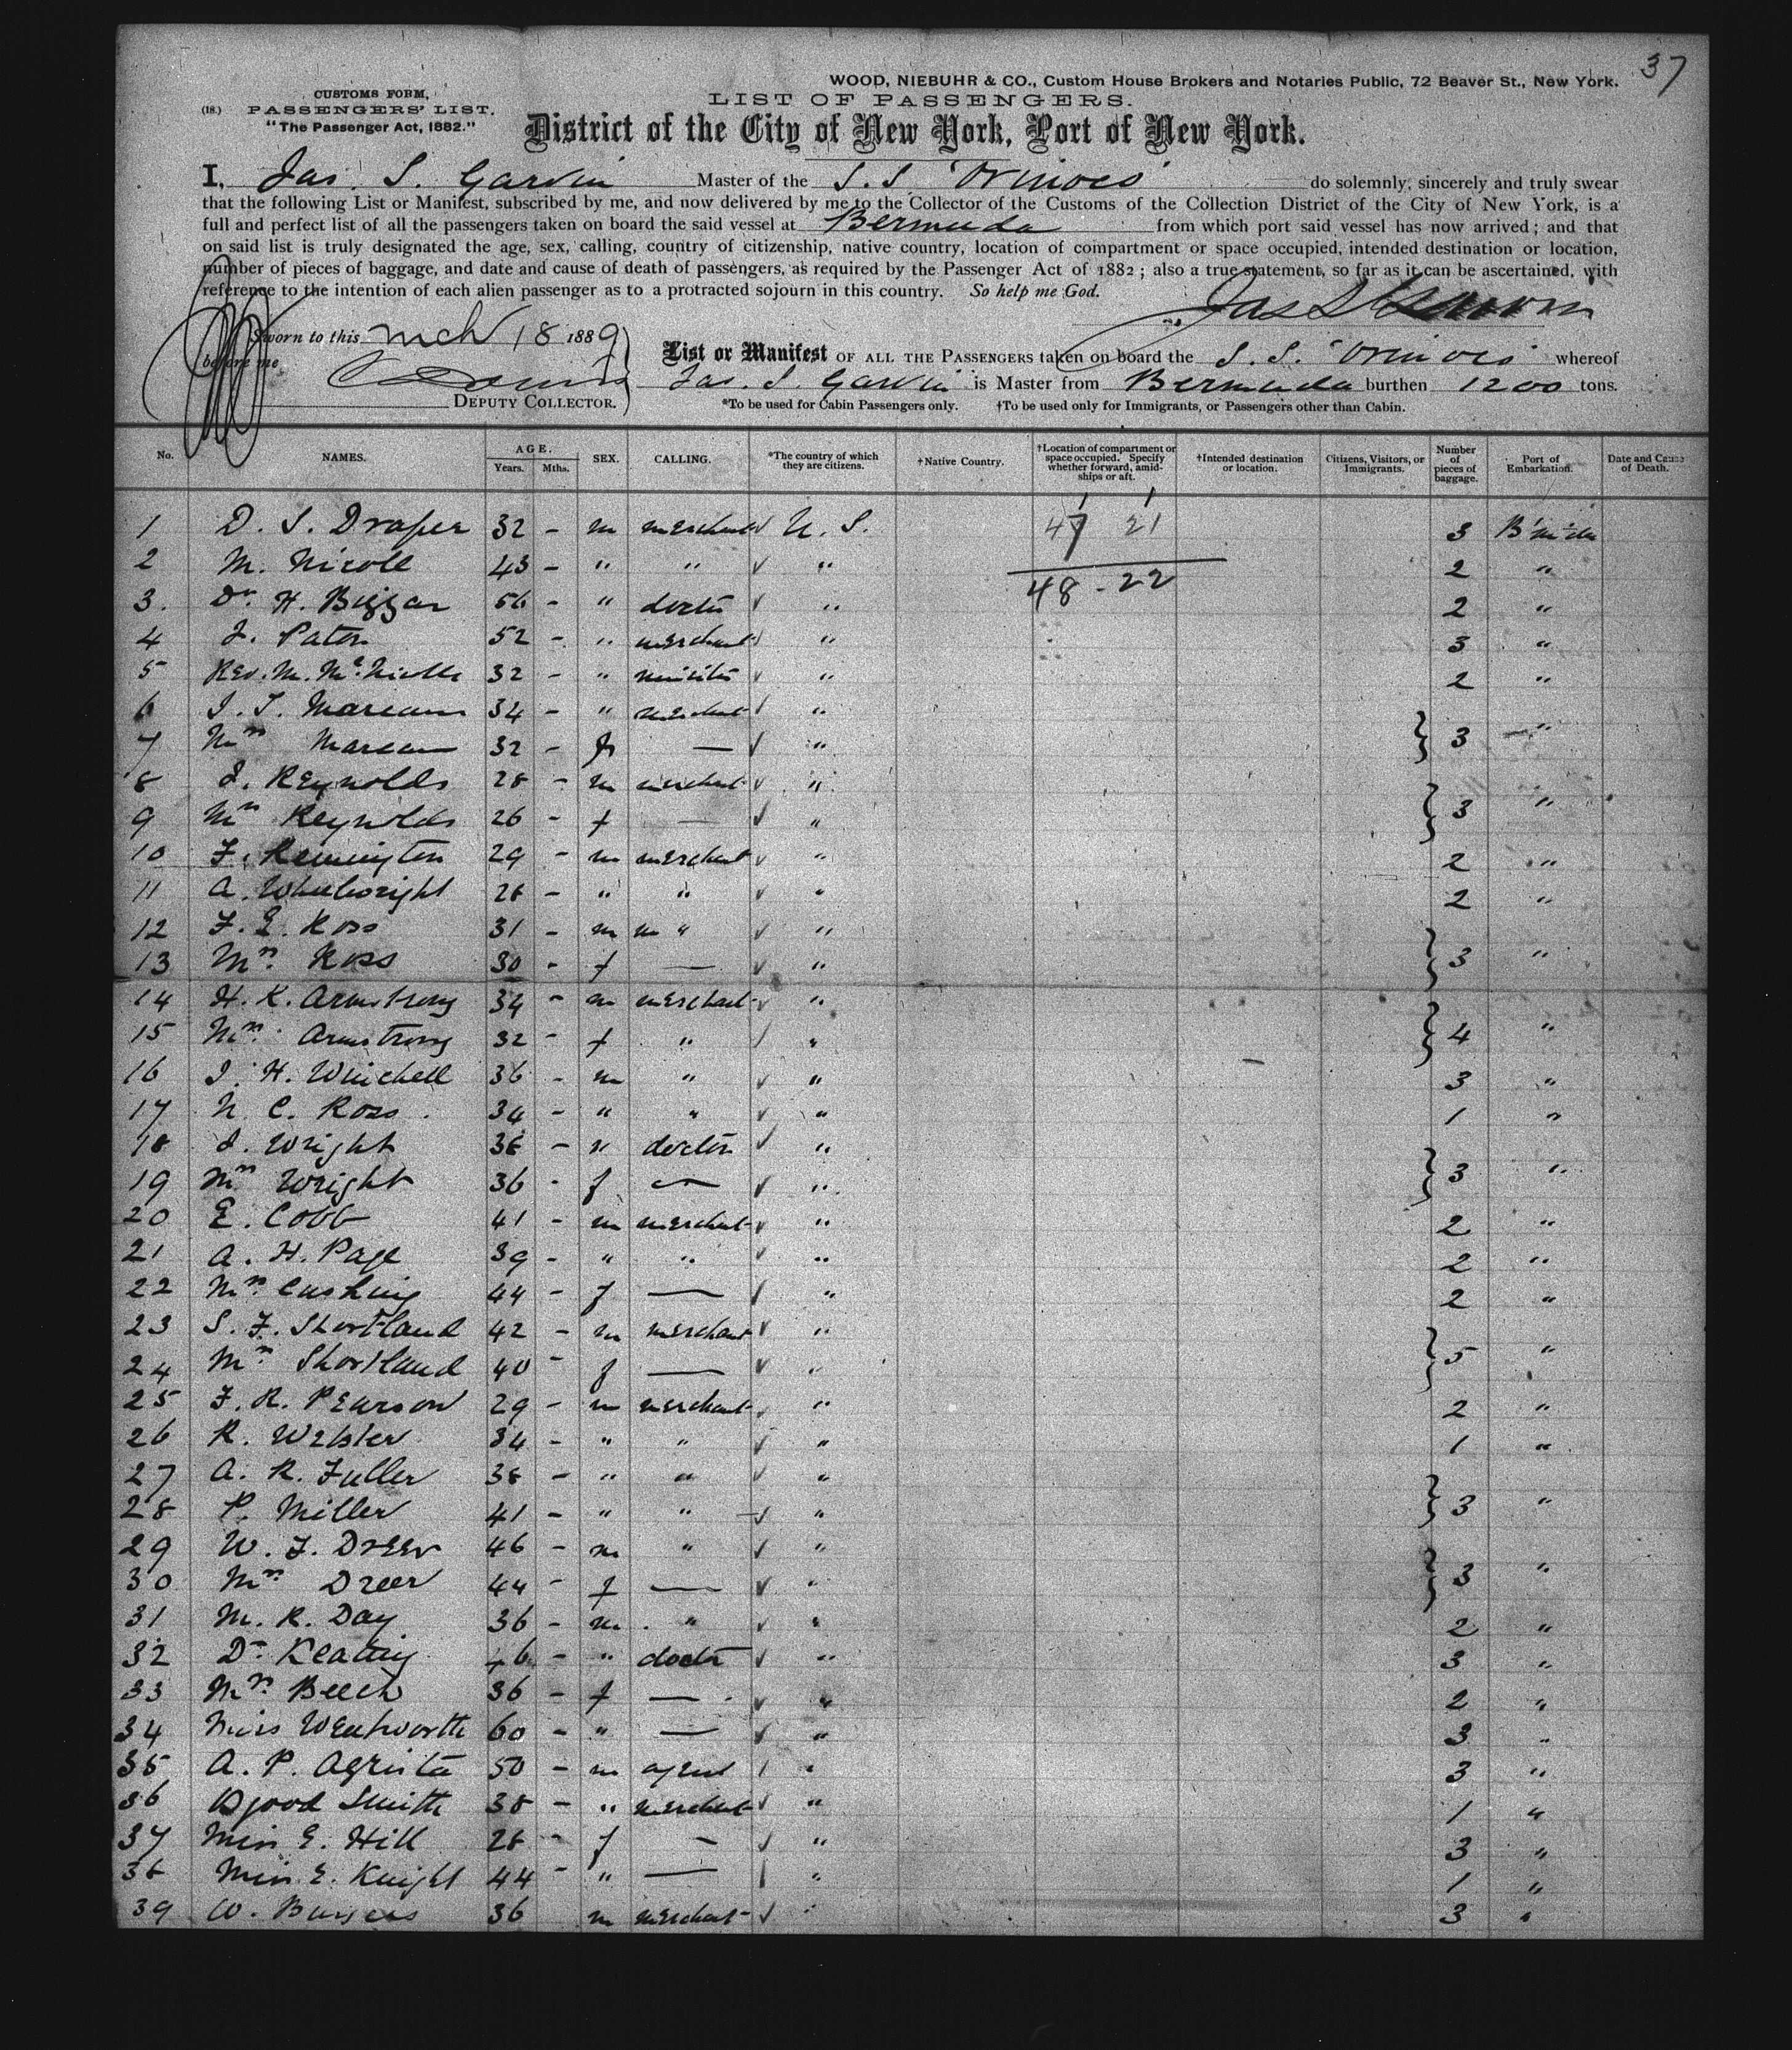 37
WOOD, NIEBUHR & CO., Custom House Brokers and Notaries Public, 72 Beaver St., New York.
CUSTOMS FORM,
(18.) PASSENGERS' LIST.
"The Passenger Act, 1882."
LIST OF PASSENGERS.
District of the City of New York, Port of New York.
I, Jas. S. Garvin Master of the S.S. "Orinoco" do solemnly, sincerely and truly swear
that the following List or Manifest, subscribed by me, and now delivered by me to the Collector of the Customs of the Collection District of the City of New York, is a
full and perfect list of all the passengers taken on board the said vessel at Bermuda from which port said vessel has now arrived; and that
on said list is truly designated the age, sex, calling, country of citizenship, native country, location of compartment or space occupied, intended destination or location,
number of pieces of baggage, and date and cause of death of passengers, as required by the Passenger Act of 1882; also a true statement, so far as it can be ascertained, with
reference to the intention of each alien passenger as to a protracted sojourn in this country. So help me God.
Jas S Garvin
Sworn to this Mch 18 1889
before me
DEPUTY COLLECTOR.
List or Manifest OF ALL THE PASSENGERS taken on board the S.S. "Orinoco" whereof
Jas. S. Garvin is Master from Bermuda burthen 1200 tons.
*To be used for Cabin Passengers only. †To be used only for Immigrants, or Passengers other than Cabin.
No. NAMES. AGE. Years. Mths. SEX. CALLING. *The country of which they are citizens. †Native Country. †Location of compartment or space occupied. Specify whether forward, amidships or aft. †Intended destination or location. Citizens, Visitors, or Immigrants. Number of pieces of baggage. Port of Embarkation. Date and Cause of Death.
1 1
47 21
48 - 22
1 D. S. Draper 32 - m merchant U. S. 3 B'm'da
2 M. Nicoll 43 - " " " 2 "
3. Dr. H. Biggar 56 - " doctor " 2 "
4 J. Paton 52 - " merchant " 3 "
5 Rev. M. 32 - " minister " 2 "
6 34 - " merchant "
7 Mrs 32 - f — " } 3 "
8 J. Reynolds 28 - m merchant "
9 Mrs Reynolds 26 - f — " } 3 "
10 F. Remington 29 - m merchant " 2 "
11 A. Wheelwright 28 - " " " 2 "
12 F. E. Ross 31 - m m " "
13 Mrs. Ross 30 - f — " } 3 "
14 H. K. Armstrong 34 - m merchant "
15 Mrs. Armstrong 32 - f " " } 4 "
16 J. H. Winchell 36 - m " " 3 "
17 N. C. Ross. 34 - " " " 1 "
18 J. Wright 38 - " doctor "
19 Mrs Wright 36 - f — " } 3 "
20 E. Cobb 41 - m merchant " 2 "
21 A. H. Page 39 - " " " 2 "
22 Mrs. Cushing 44 - f — " 2 "
23 S. F. Shortland 42 - m merchant "
24 Mrs Shortland 40 - f — " } 5 "
25 F. R. Pearson 29 - m merchant " 2 "
26 R. Webster 34 - " " " 1 "
27 A. R. Fuller 38 - " " "
28 P. Miller 41 - " " " } 3 "
29 W. F. Dreer 46 - m " "
30 Mrs Dreer 44 - f — " } 3 "
31 M. R. Day 36 - m " " 2 "
32 Dr Keating 46 - " doctor " 3 "
33 Mrs. Beech 36 - f — " 2 "
34 Miss Wentworth 60 - " — " 3 "
35 A. P. 50 - m agent " 3 "
36 Smith 38 - " merchant " 1 "
37 Miss E. Hill 28 - f — " 3 "
38 Miss E. Knight 44 - " — " 1 "
39 W. Burgess 36 m merchant " 3 "